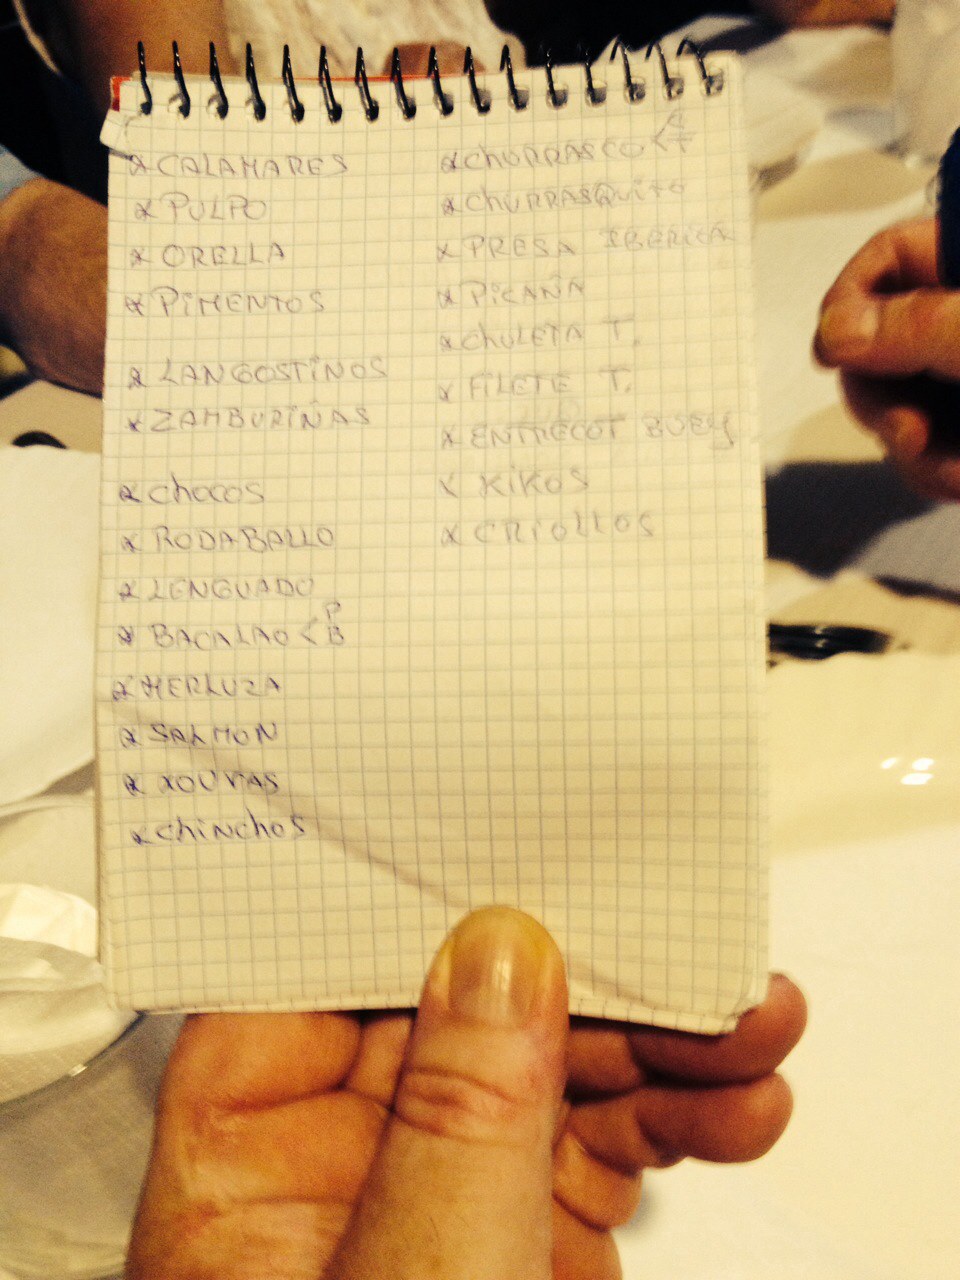 * CALAMARES
* PULPO
* ORELLA
* PIMENTOS
* LANGOSTINOS
* ZAMBURIÑAS
* chocos
* RODABALLO
* LENGUADO
* BACALAO < P B
* MERLUZA
* SALMON
* XOUVAS
* chinchos
* chURRASCO < C T
* chURRASQUITO
* PRESA IBERICA
* PICAÑA
* chULETA T.
* FILETE T.
* ENTRECOT BUEY
* KIKOS
* CRIOLLOS